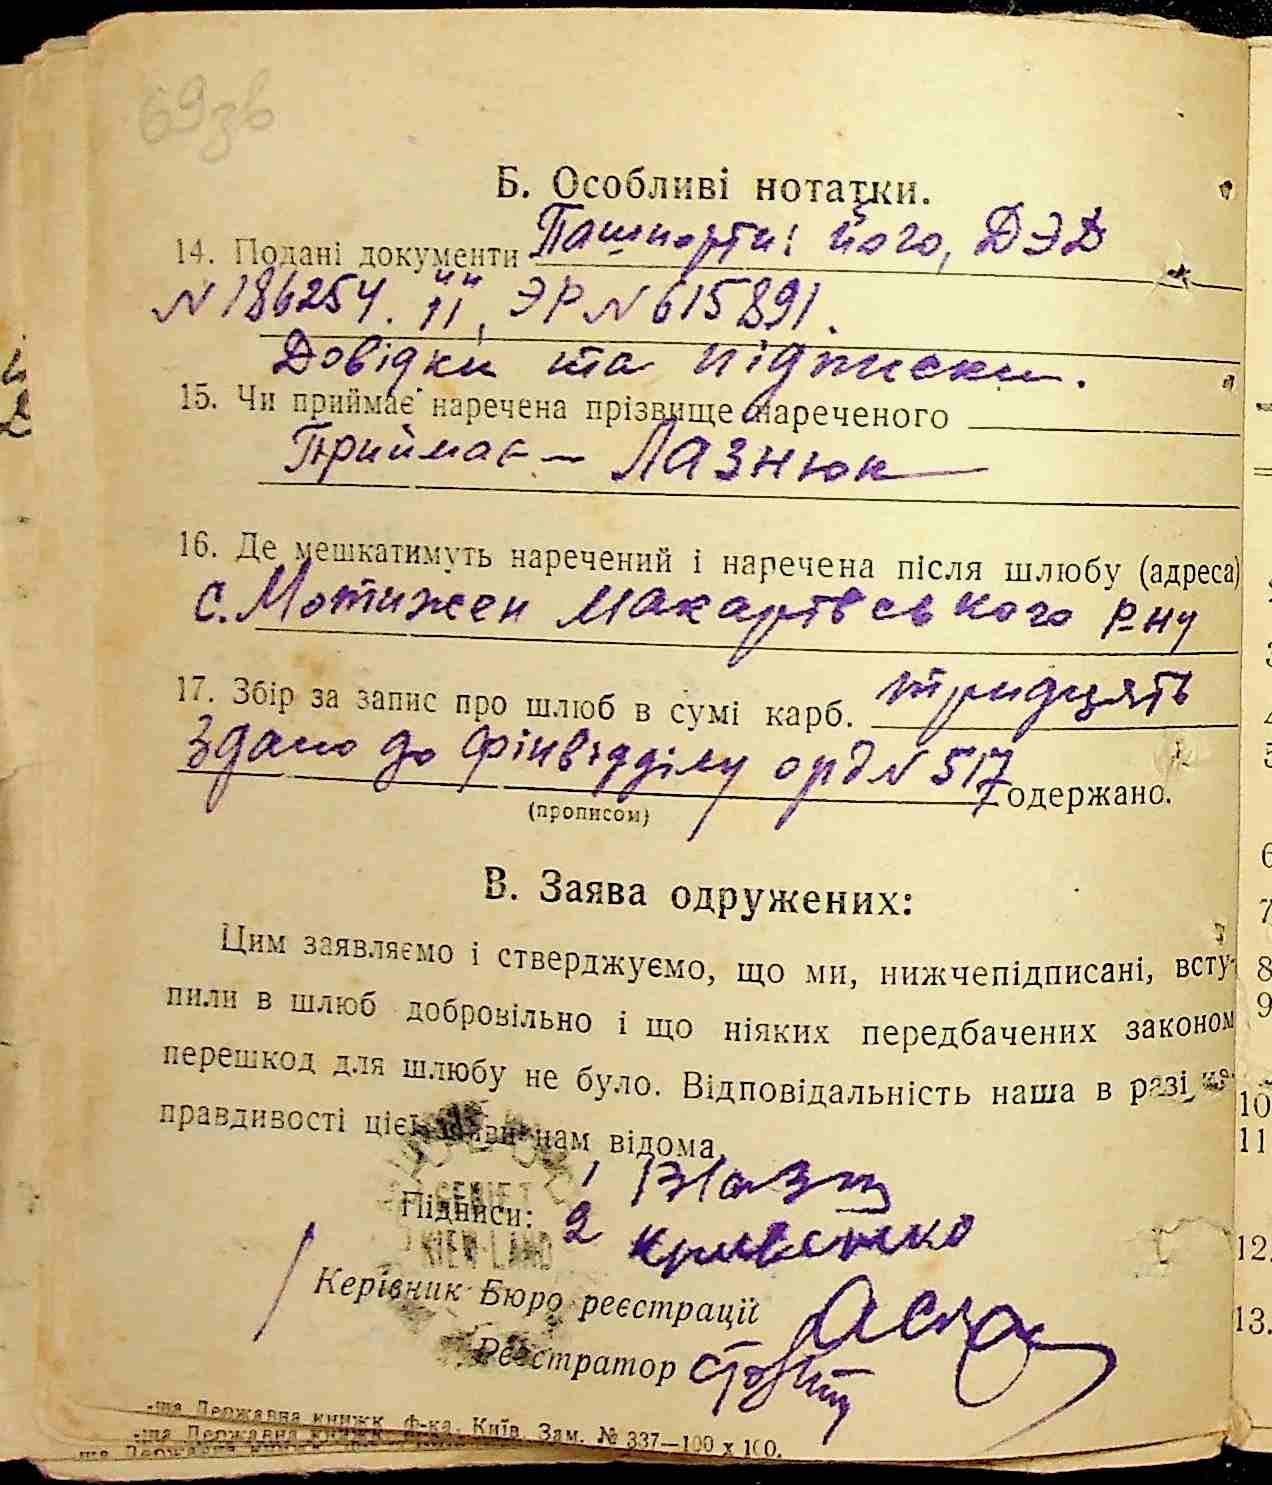 69зв
Б. Особливі нотатки.
14. Подані документи Пашпорти: його, ДЭД
N 186254. її, ЭР N 615891.
Довідки та підписки.
15. Чи приймає наречена прізвище нареченого
Приймає – Лазнюк
16. Де мешкатимуть наречений і наречена після шлюбу (адреса)
с. Мотижен Макарівського р-ну
17. Збір за запис про шлюб в сумі карб. тридцять
Здано до фінвідділу орд N 517 одержано.
(прописом)
В. Заява одружених:
Цим заявляємо і стверджуємо, що ми, нижчепідписані, всту-
пили в шлюб добровільно і що ніяких передбачених законом
перешкод для шлюбу не було. Відповідальність наша в разі не-
правдивості цієї заяви нам відома.
Підписи: 1
2 Кривенко
KIEW-LAND
Керівник Бюро реєстрації
Реєстратор
-ша Державна книжк. Ф-ка. Київ. Зам. № 337—100 х 100.